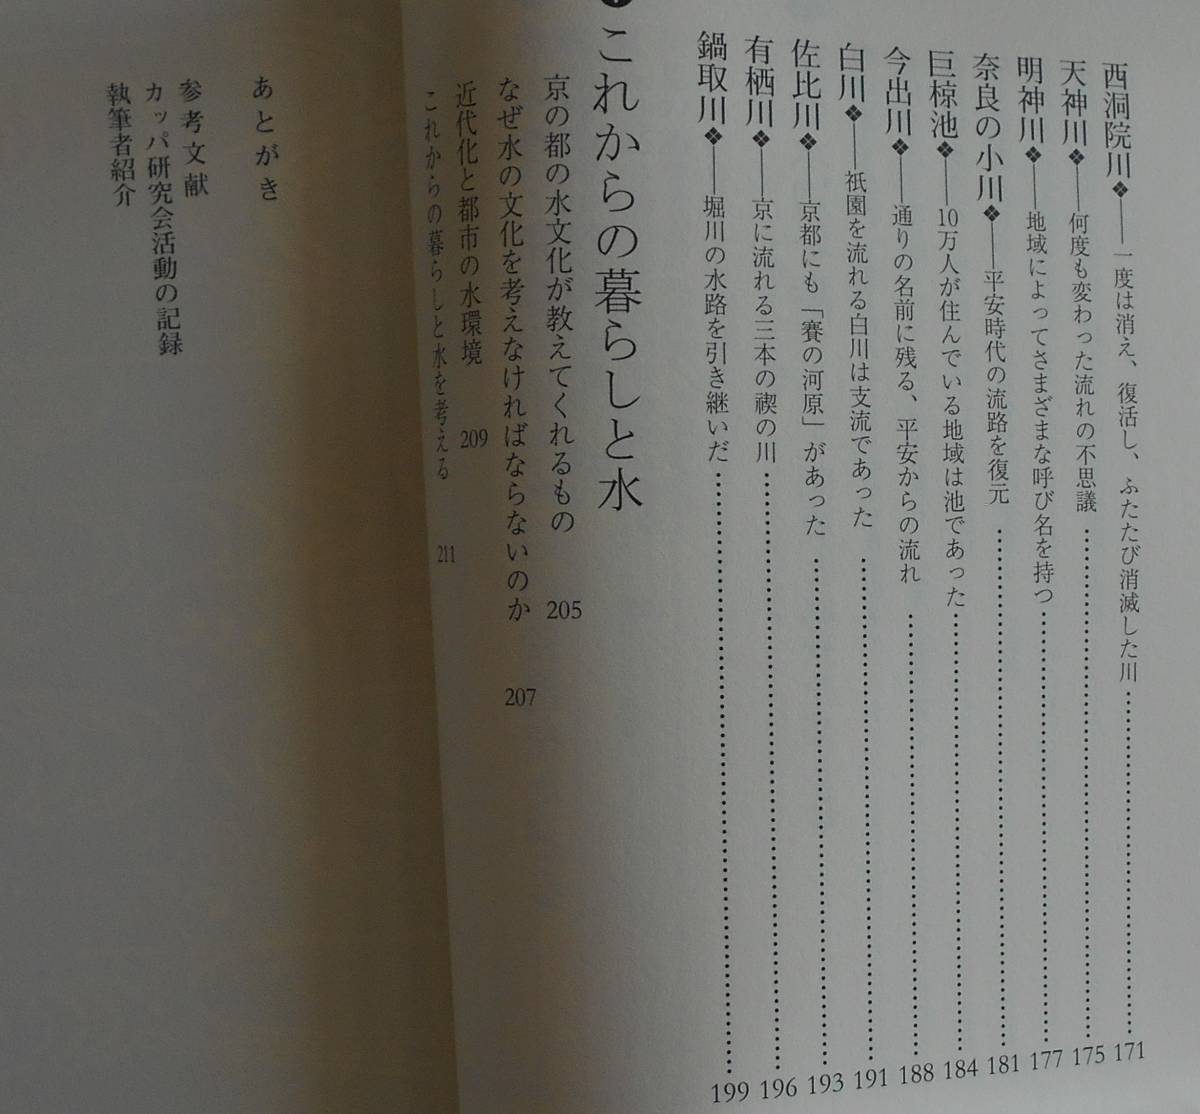 西洞院川❖——一度は消え、復活し、ふたたび消滅した川……171
天神川❖——何度も変わった流れの不思議……175
明神川❖——地域によってさまざまな呼び名を持つ……177
奈良の小川❖——平安時代の流路を復元……181
巨椋池❖——10万人が住んでいる地域は池であった……184
今出川❖——通りの名前に残る、平安からの流れ……188
白川❖——祇園を流れる白川は支流であった……191
佐比川❖——京都にも「賽の河原」があった……193
有栖川❖——京に流れる三本の禊の川……196
鍋取川❖——堀川の水路を引き継いだ……199
これからの暮らしと水
京の都の水文化が教えてくれるもの 205
なぜ水の文化を考えなければならないのか 207
近代化と都市の水環境 209
これからの暮らしと水を考える 211
あとがき
参考文献
カッパ研究会活動の記録
執筆者紹介